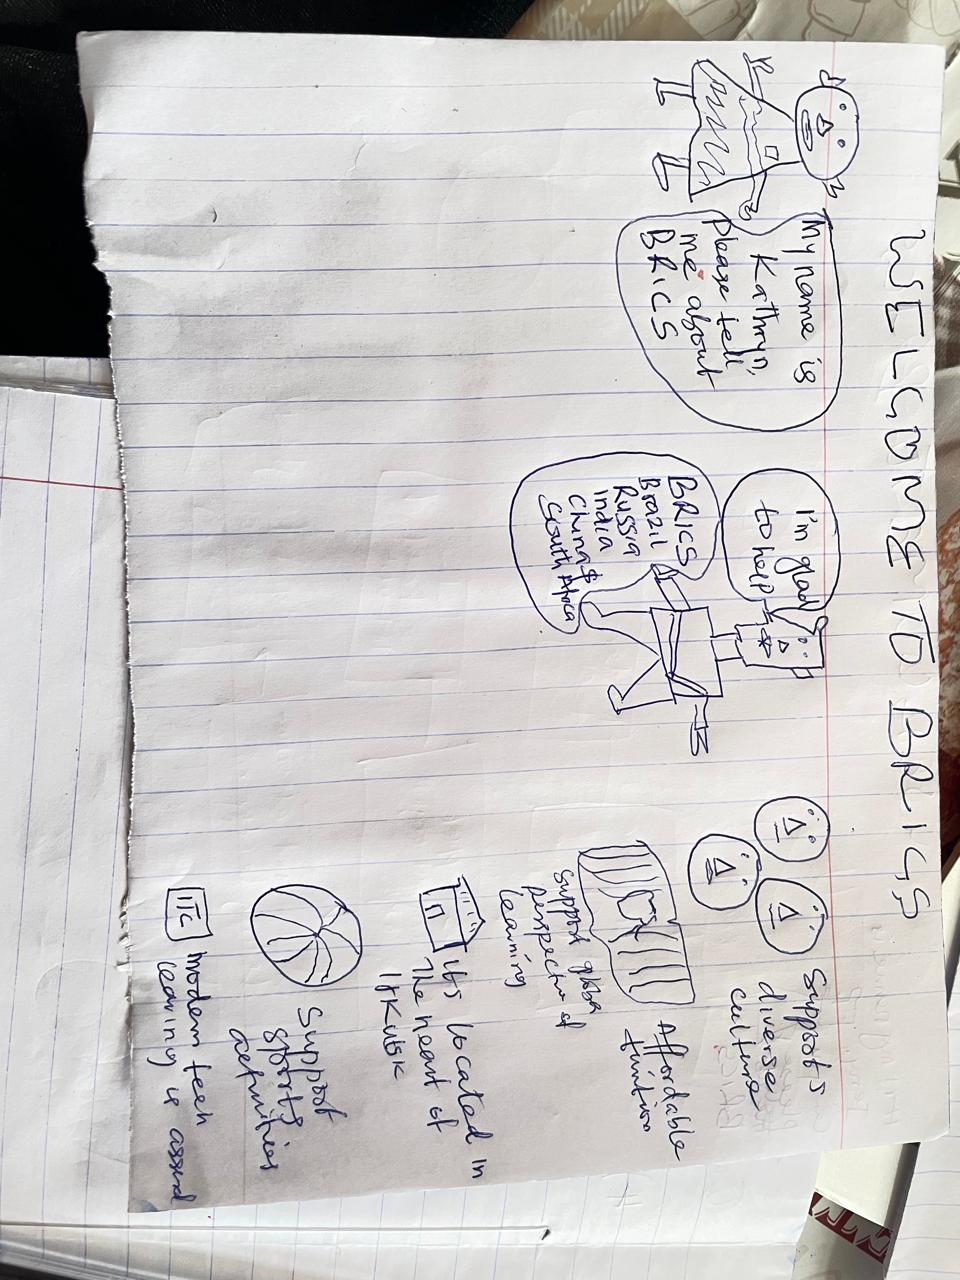 WELCOME TO BRICS
My name is
Kathryn,
Please tell
me about
BRICS
I'm glad
to help
BRICS
Brazil
Russia
India
China $
South Africa
Supports
diverse
culture
Affordable
tuition
Support global
perspective of
learning
Its located in
The heart of
Irkutsk
Support
sports
activities
modern tech
learning is assured